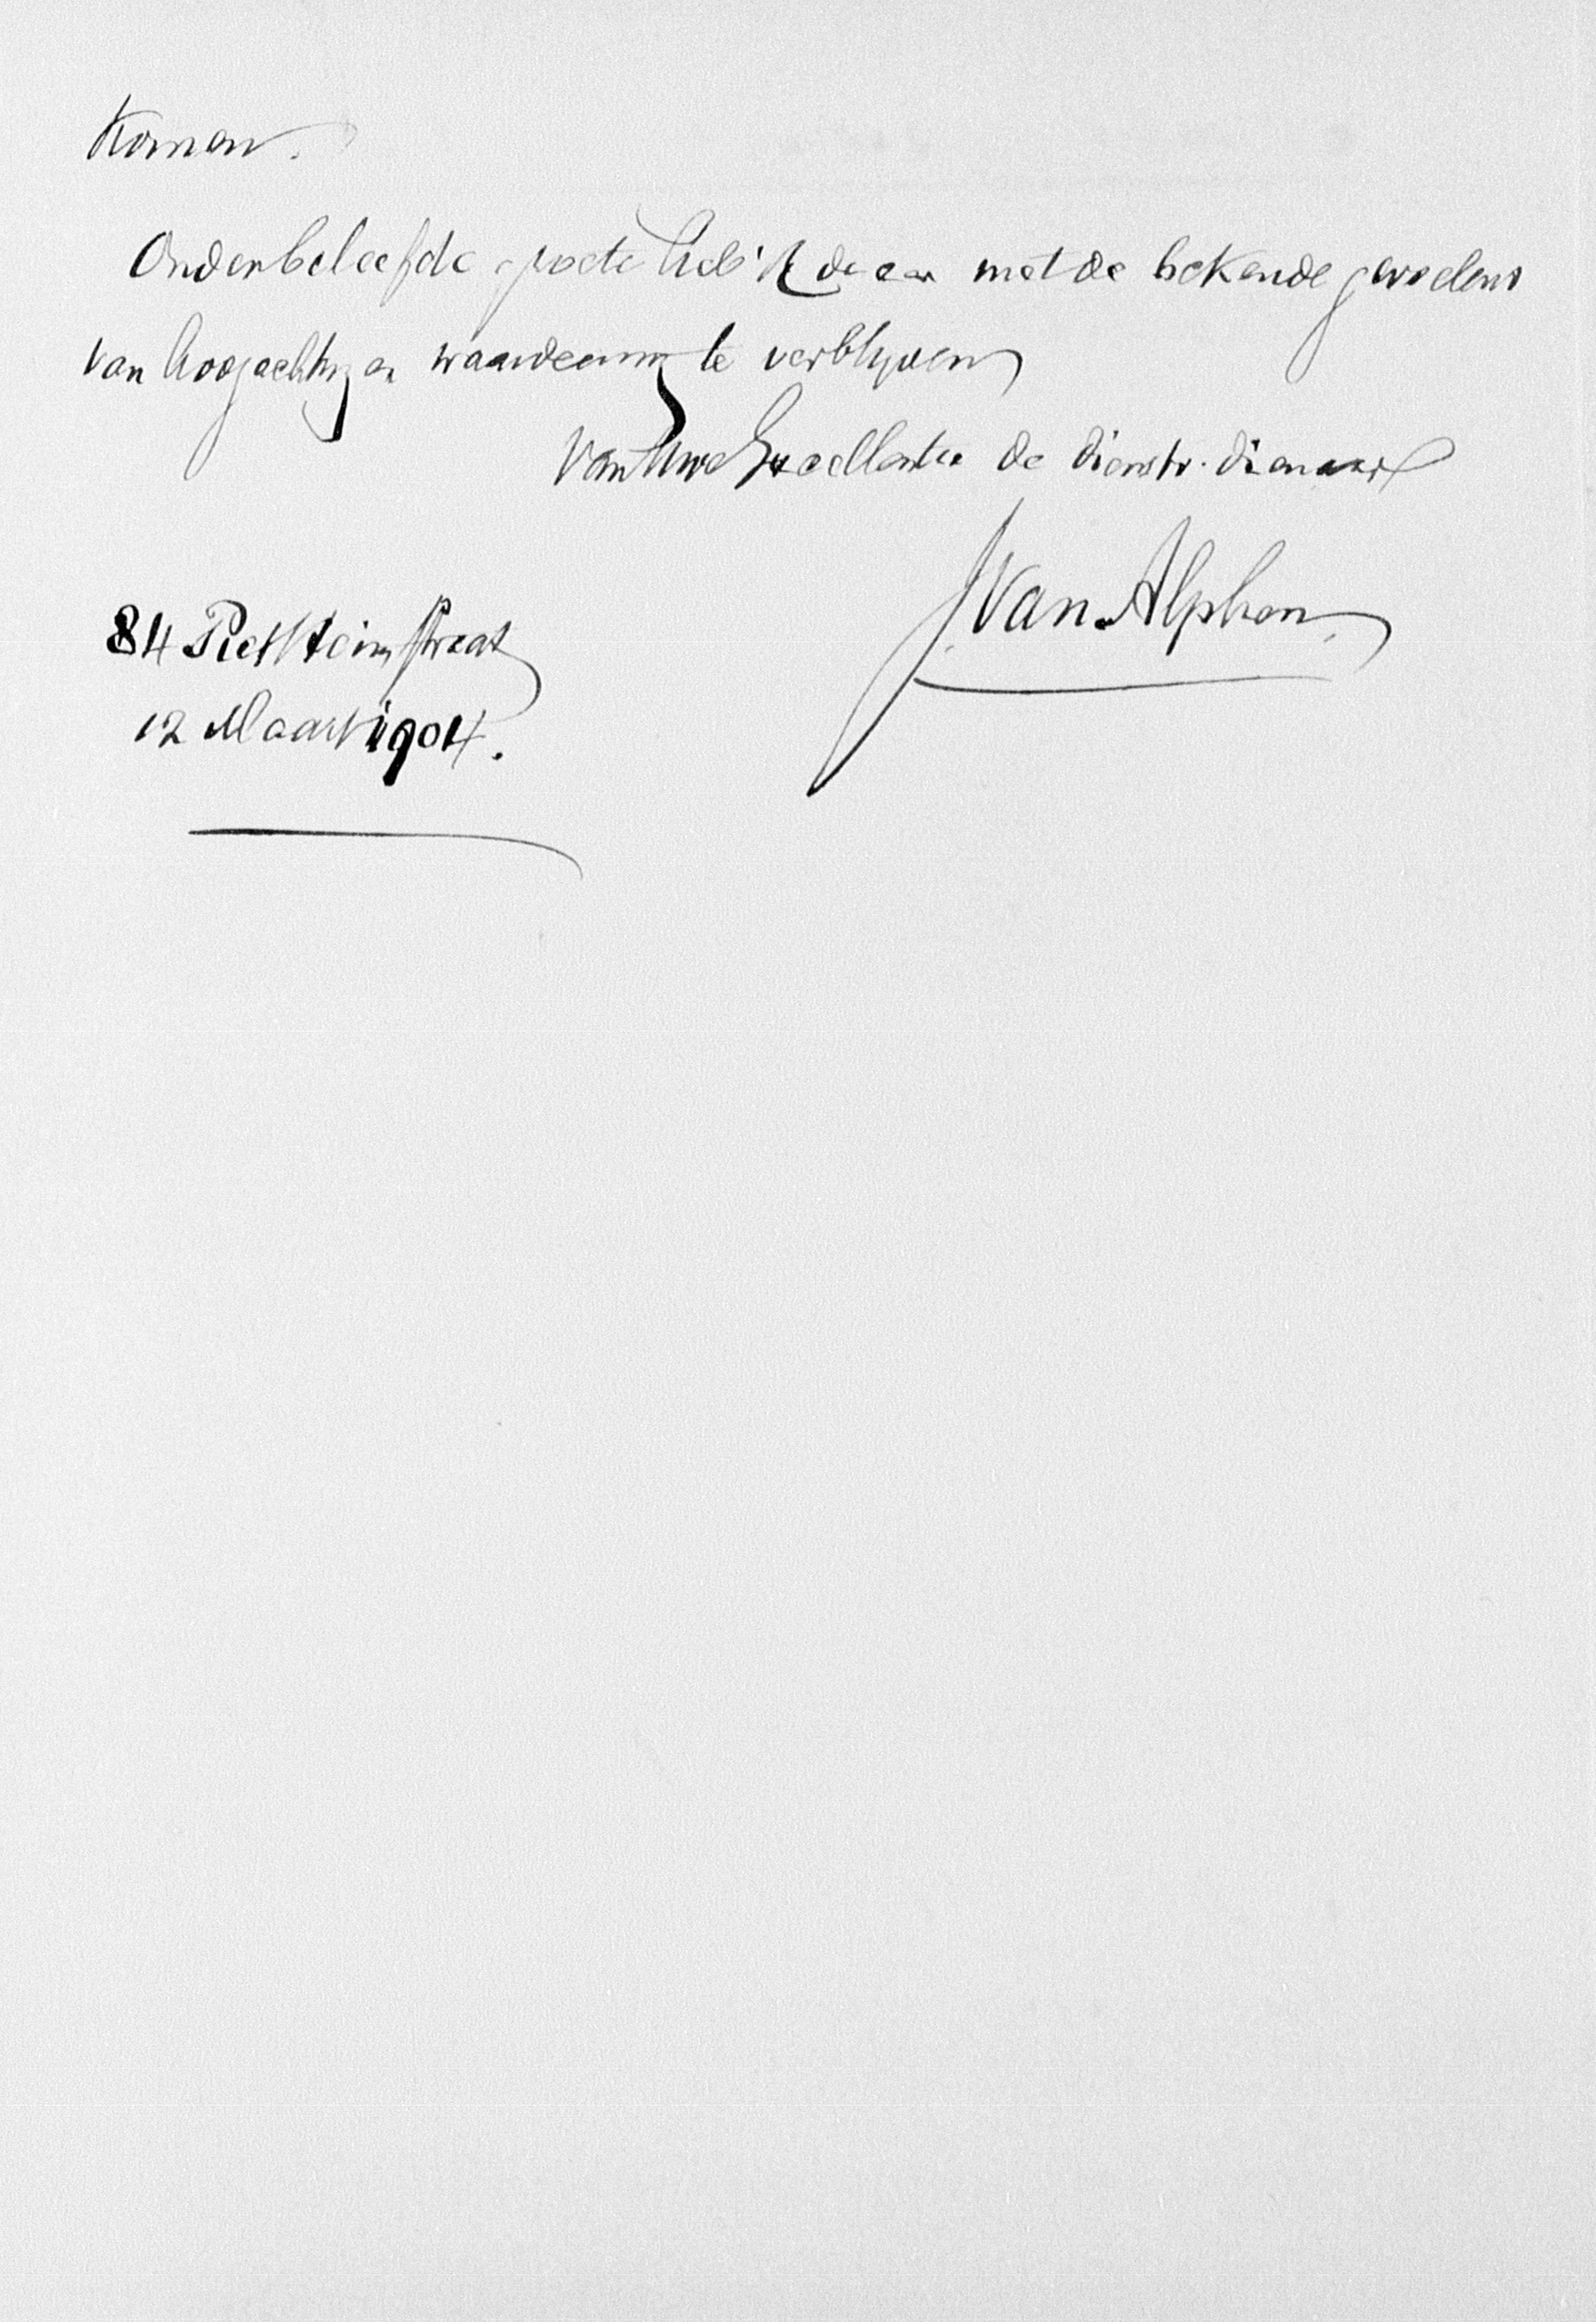 Komen.
Onder beleefde groete heb 'k de eer met de bekende gevoelens
van hoogachting en waardeering te verblijven
Van Uwe Excellentie de dienstv. dienaar
J. Van Alphen.
84 Piet Heinstraat
12 Maart 1904.